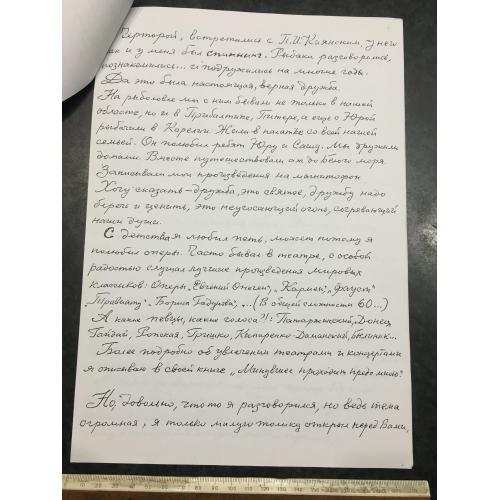 Черторой, встретились с П.И. Киянским, у него
как и у меня был спиннинг. Рыбаки разговорились,
познакомились... и подружились на многие годы.
Да это была настоящая, верная дружба.
На рыболовле мы с ним бывали не только в нашей
области, но и в Прибалтике, Питере, а еще с Юрой
рыбачили в Карелии. Жили в палатке со всей нашей
семьей. Он полюбил ребят Юру и Сашу. Мы дружили
домами. Вместе путешествовали аж до Белого моря.
Записывали мои произведения на магнитофон
Хочу сказать - дружба, это святое, дружбу надо
беречь и ценить, это неугасающий огонь, согревающий
наши души.
С детства я любил петь, может потому я
полюбил оперы. Часто бывал в театре, с особой
радостью слушал лучшие произведения мировых
классиков: Оперы „Евгений Онегин", „Кармен", „Фауст"
„Травиату". Бориса Годунова", ...(В общей сложности 60...)
А какие певцы, какие голоса?!: Паторжинский, Донец
Гайдай, Ропская, Гришко, Кипаренко-Даманский, Белинник...
Более подробно об увлечении театрами и концертами
я описываю в своей книге „Минувшее проходит предо мною"
Но, довольно, что-то я разговорился, но ведь тема
огромная, я только малую толику открыл перед Вами,